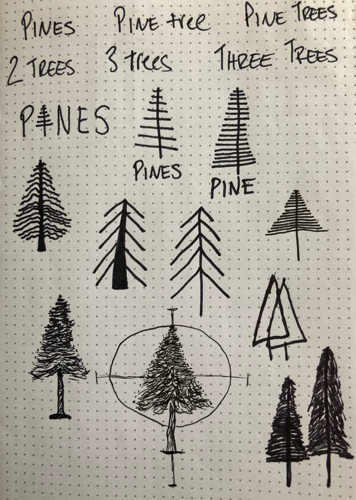 PINES Pine tree PINE TREES
2 TREES 3 trees THREE TREES
PINES
PINES
PINE